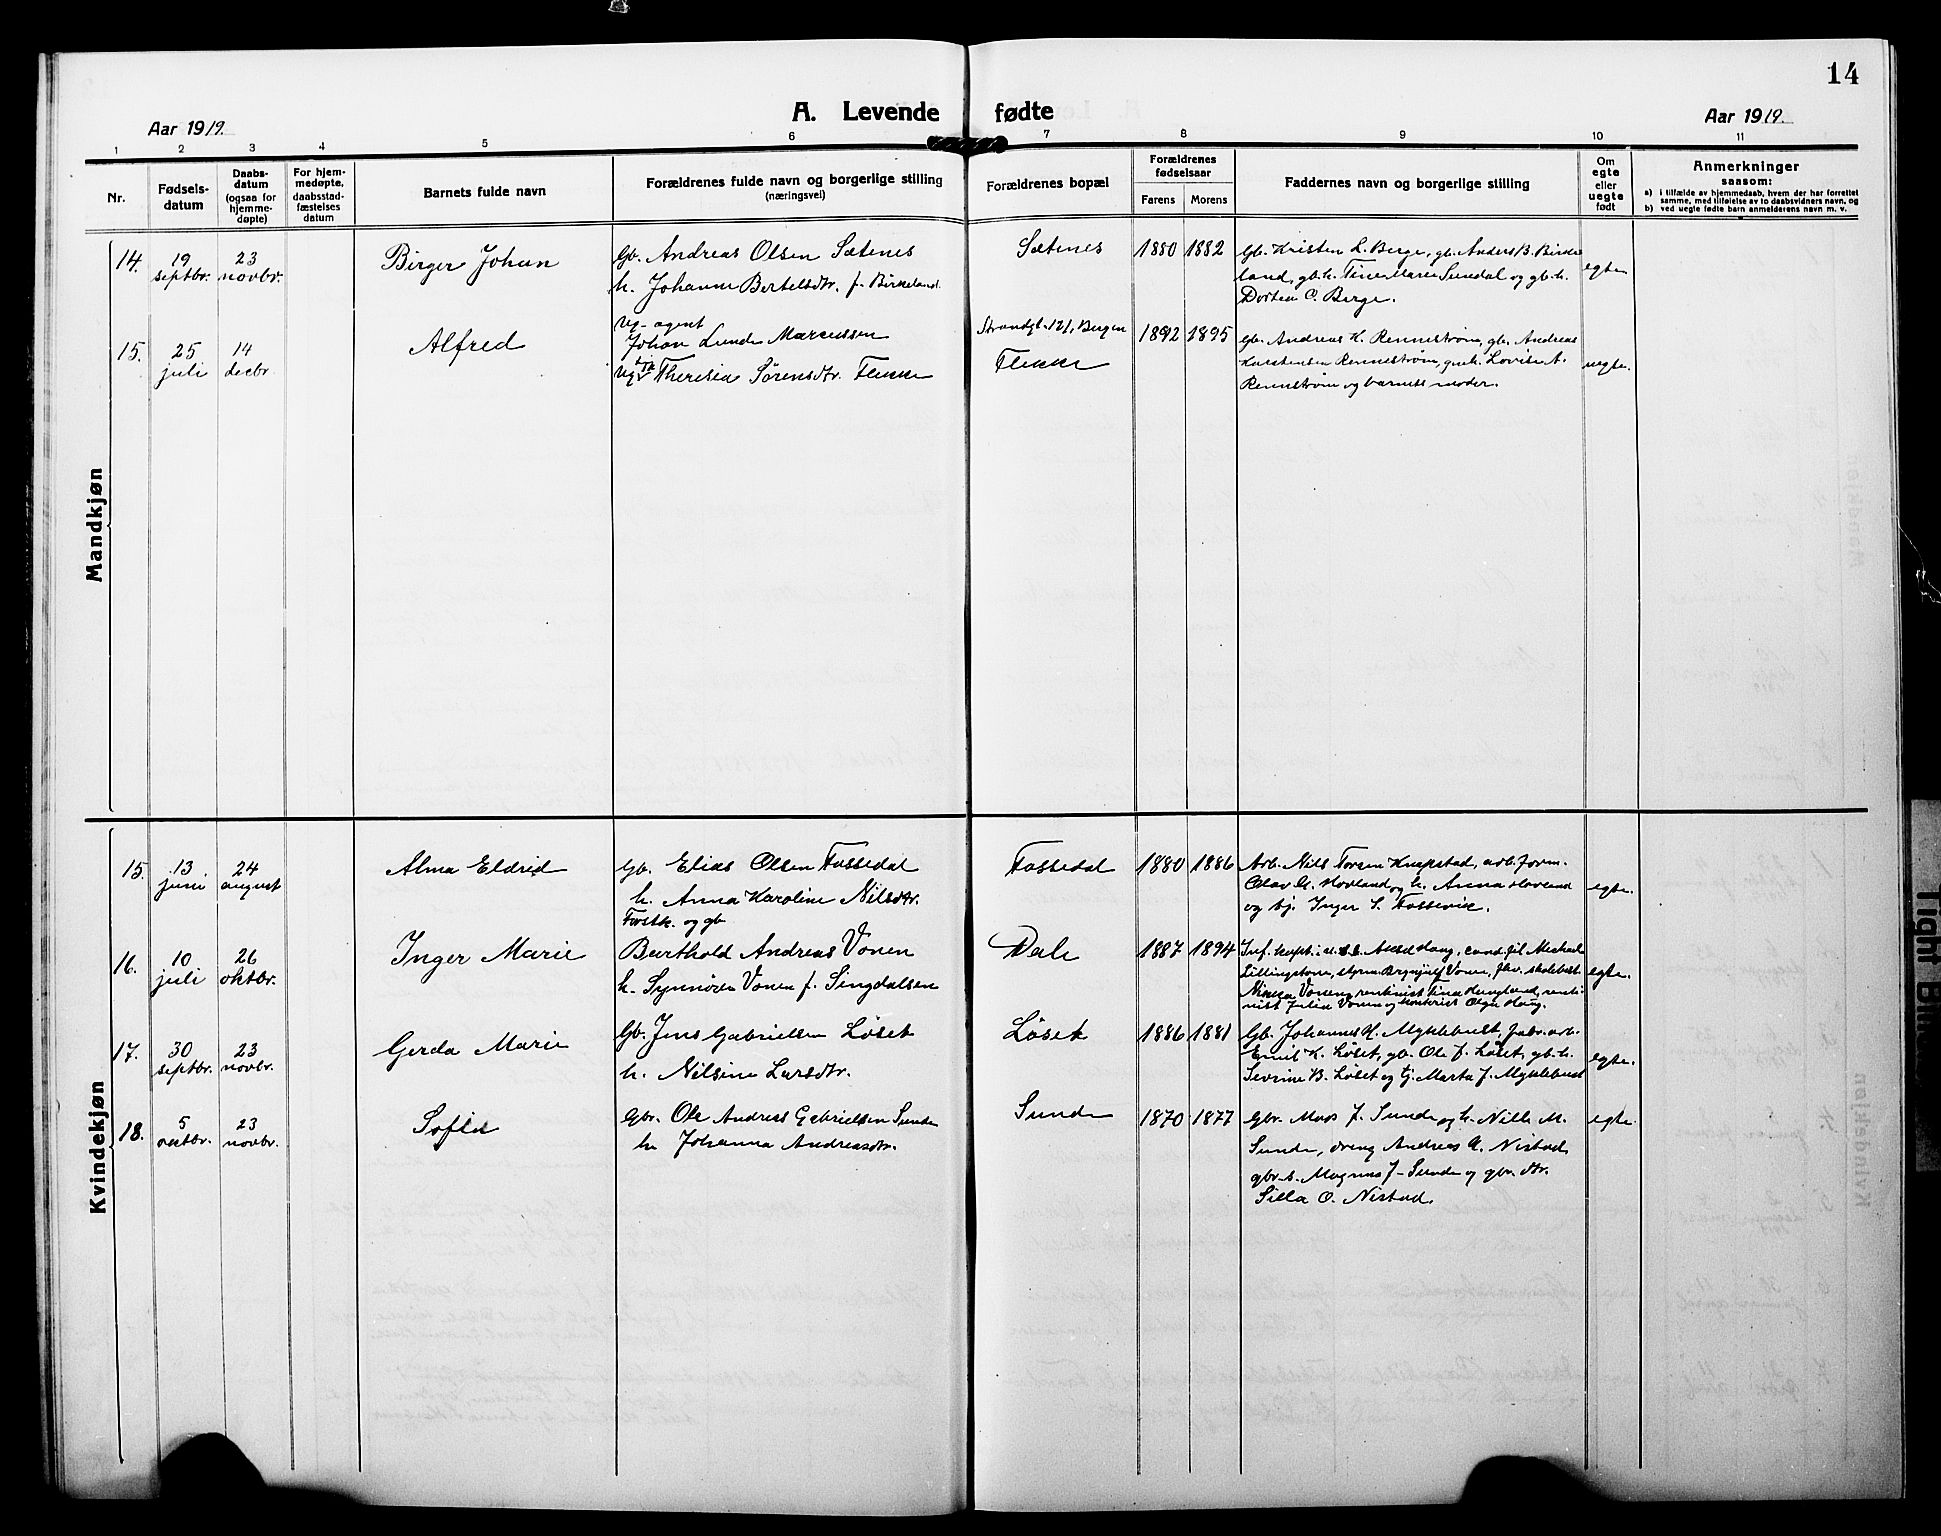 14
A. Levende fødte
Aar 1919.
Aar 1919.
1 2 3 4 5 6 7 8 9 10 11
Nr.
Fødsels-
datum
Daabs-
datum
(ogsaa for
hjemme-
døpte)
For hjem-
medøpte,
daabsstad-
fæstelses
datum
Barnets fulde navn
Forældrenes fulde navn og borgerlige stilling
(næringsvei)
Forældrenes bopæl
Forældrenes
fødselsaar
Farens Morens
Faddernes navn og borgerlige stilling
Om
egte
eller
uegte
født
Anmerkninger
saasom:
a) i tilfælde av hjemmedaab, hvem der har forrettet
samme, med tilføielse av to daabsvidners navn, og
b) ved uegte fødte barn anmelderens navn m. v.
Mandkjøn
14.
19
septbr.
23
novbr.
Birger Johan
Gb. Andreas Olsen Sætenes
h. Johanne Bertelsdtr. f. Birkeland.
Sætenes
1880 1882
Gb. Kristen L. Berge, gb. Anders B. Birke
land, gb.h. Tine Marie Sundal og gb.h.
Dortea C. Berge.
egte
15.
25
juli
14
decbr.
Alfred
Ug. agent
Johan Lunde Marcussen
Theresia Sørensdtr. Flekke
Strandgt. 121, Bergen
Flekke
1892 1895
Gb. Andreas K. Rennestrøm, gb. Andreas
Karstensen Rennestrøm, Lovise A.
Rennestrøm og barnets moder.
uegte.
Kvindekjøn
15.
13
juni
24
august
Alma Eldrid
Gb. Elias Olsen Fossedal
h. Anna Karoline Nilsdtr.
Fossedal
1880 1886
Arb. Nils Torsen Knapstad, arb.form.
Olav Hovland og h. Anna Hovland
og tj. Inger S. Fossevik.
egte.
16.
10
juli
26
oktbr.
Inger Marie
Forstk. og gb
Barthold Andreas Vonen
h. Synnöve Vonen f. Singdalsen
Dale
1887 1894
Haug, cand. fil. Michael
Lillingstone, styrm. Brynjulf Vonen, skolebest
Vonen, Tina Haugland,
Julia Vonen og kontorist Olga Haug.
egte.
17.
30
septbr.
23
novbr.
Gerda Marie
Gb. Jens Gabrielsen Løset
h. Nilsine Larsdtr.
Løset
1886 1881
Gb. Johannes H. Myklebust, fabr.arb.
Emil K. Løset, gb. Ole J. Løset, gb.h.
Sevrine B. Løset og tj. Marta J. Myklebust
egte.
18.
5
oktbr.
23
novbr.
Sofia
Gbr. Ole Andreas Gabrielsen Sunde
h. Johanna Andreasdtr.
Sunde
1870 1877
Gbr. Mons J. Sunde og h. Nille M.
Sunde, dreng Andreas A. Nistad
gbr.s. Magnus J. Sunde og gbr. dtr.
Silla O. Nistad.
egte.